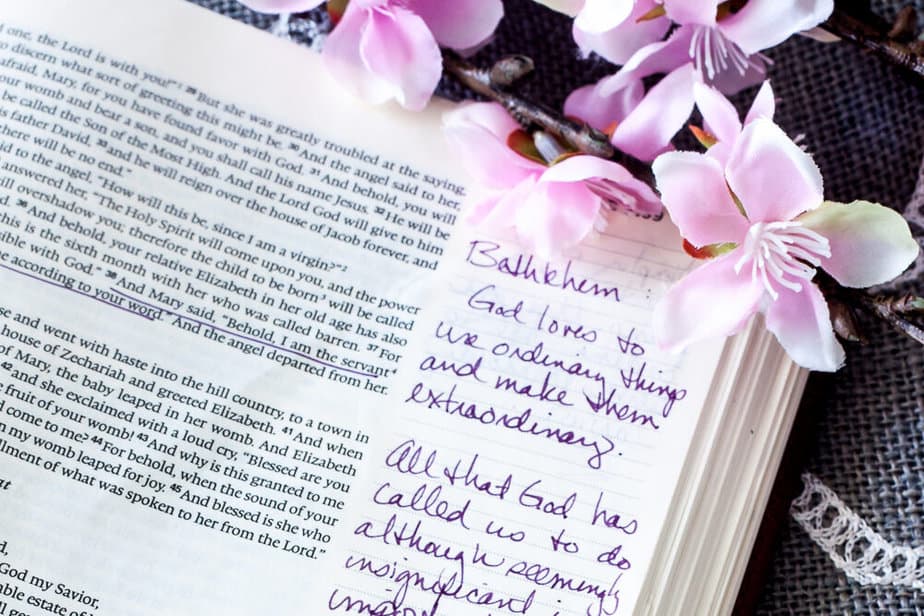 one, the Lord is with you!"¹ ²⁹ But she was greatly troubled at the saying,
o discern what sort of greeting this might be. ³⁰ And the angel said to her,
afraid, Mary, for you have found favor with God. ³¹ And behold, you will
our womb and bear a son, and you shall call his name Jesus. ³² He will be
be called the Son of the Most High. And the Lord God will give to him
father David, ³³ and he will reign over the house of Jacob forever, and
here will be no end."
id to the angel, "How will this be, since I am a virgin?"²
answered her, "The Holy Spirit will come upon you, and the power
ill overshadow you; therefore the child to be born³ will be called
d. ³⁶ And behold, your relative Elizabeth in her old age has also
his is the sixth month with her who was called barren. ³⁷ For
ble with God." ³⁸ And Mary said, "Behold, I am the servant⁴
e according to your word." And the angel departed from her.
se and went with haste into the hill country, to a town in
house of Zechariah and greeted Elizabeth. ⁴¹ And when
of Mary, the baby leaped in her womb. And Elizabeth
⁴² and she exclaimed with a loud cry, "Blessed are you
fruit of your womb! ⁴³ And why is this granted to me
d come to me? ⁴⁴ For behold, when the sound of your
n my womb leaped for joy. ⁴⁵ And blessed is she who
llment of what was spoken to her from the Lord."
at
d,
God my Savior,
ble estate of
Bethlehem :
God loves to
use ordinary things
and make them
extraordinary.
All that God has
called us to do
although seemingly
insignificant